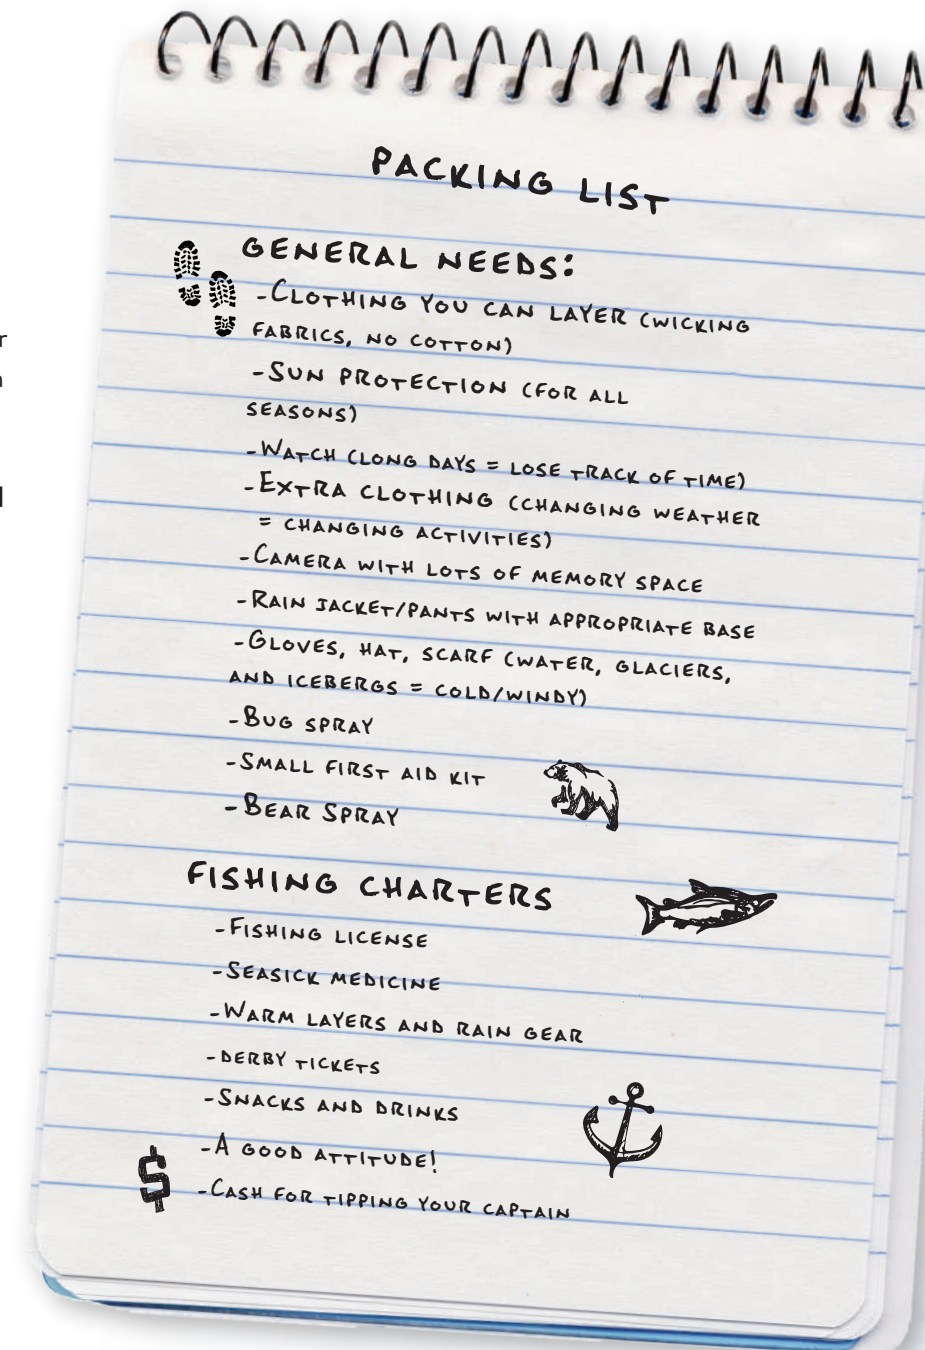 PACKING LIST
GENERAL NEEDS:
-CLOTHING YOU CAN LAYER (WICKING
FABRICS, NO COTTON)
-SUN PROTECTION (FOR ALL
SEASONS)
-WATCH (LONG DAYS = LOSE TRACK OF TIME)
-EXTRA CLOTHING (CHANGING WEATHER
= CHANGING ACTIVITIES)
-CAMERA WITH LOTS OF MEMORY SPACE
-RAIN JACKET/PANTS WITH APPROPRIATE BASE
-GLOVES, HAT, SCARF (WATER, GLACIERS,
AND ICEBERGS = COLD/WINDY)
-BUG SPRAY
-SMALL FIRST AID KIT
-BEAR SPRAY
FISHING CHARTERS
-FISHING LICENSE
-SEASICK MEDICINE
-WARM LAYERS AND RAIN GEAR
-DERBY TICKETS
-SNACKS AND DRINKS
-A GOOD ATTITUDE!
$
-CASH FOR TIPPING YOUR CAPTAIN